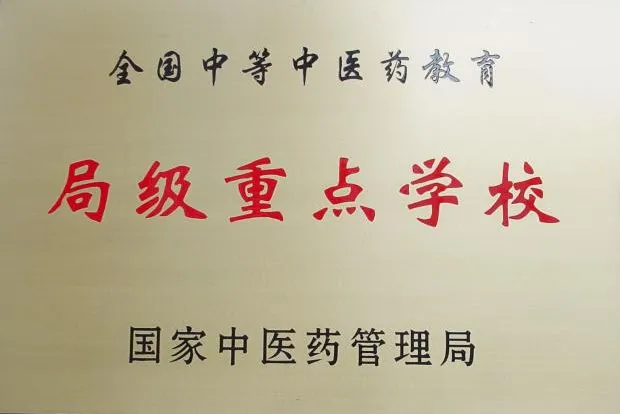 全国中等中医药教育
局级重点学校
国家中医药管理局